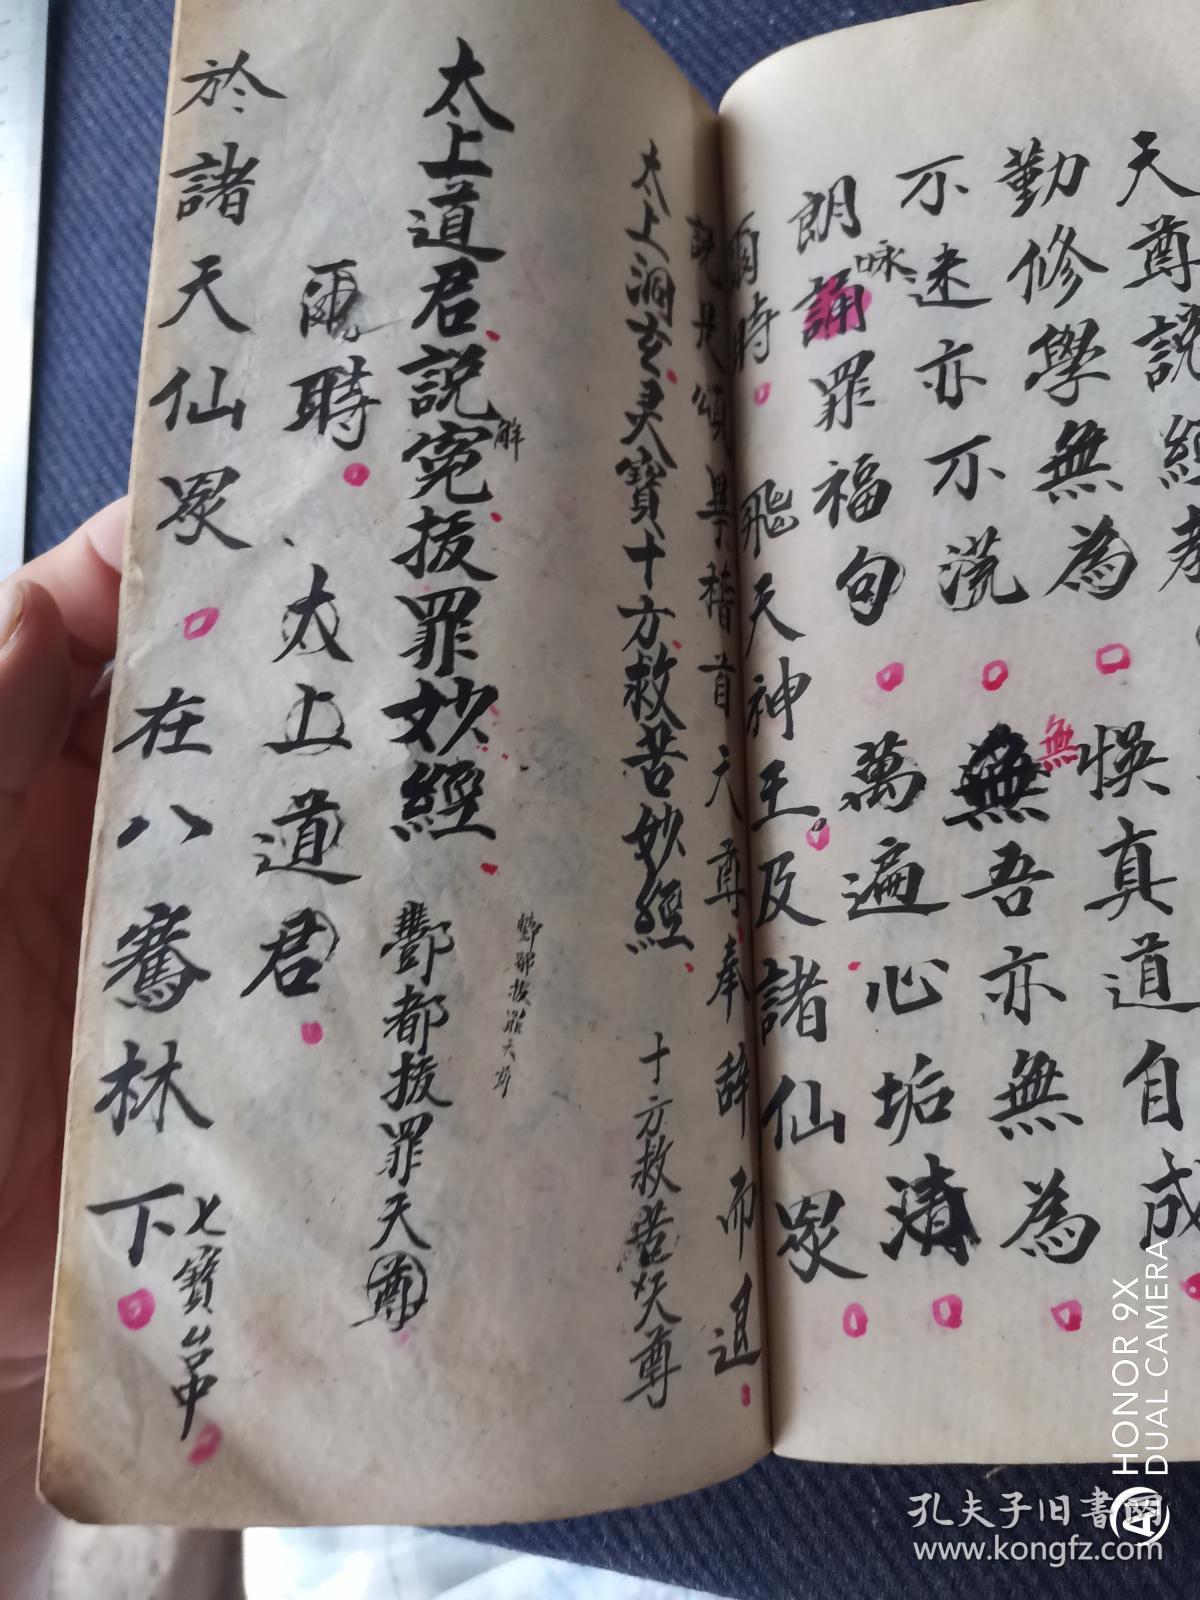 天尊說經教
勤修學無為 悞真道自成
不迷亦不荒 無吾亦無為
無
朗誦罪福句 萬遍心垢清
咏
爾時 飛天神王及諸仙眾
說是頌畢稽首天尊奉辞而退
太上洞玄灵寶十方救苦妙經 十方救苦天尊
酆都拔罪天尊
太上道君說寃拔罪妙經 酆都拔罪天尊
解
爾時 太上道君
於諸天仙眾 在八騫林下
七寶台中
HONOR 9X
DUAL CAMERA
孔夫子旧書网
www.kongfz.com